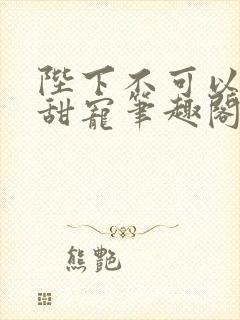 陛下不可以
甜宠笔趣阁
熊艷